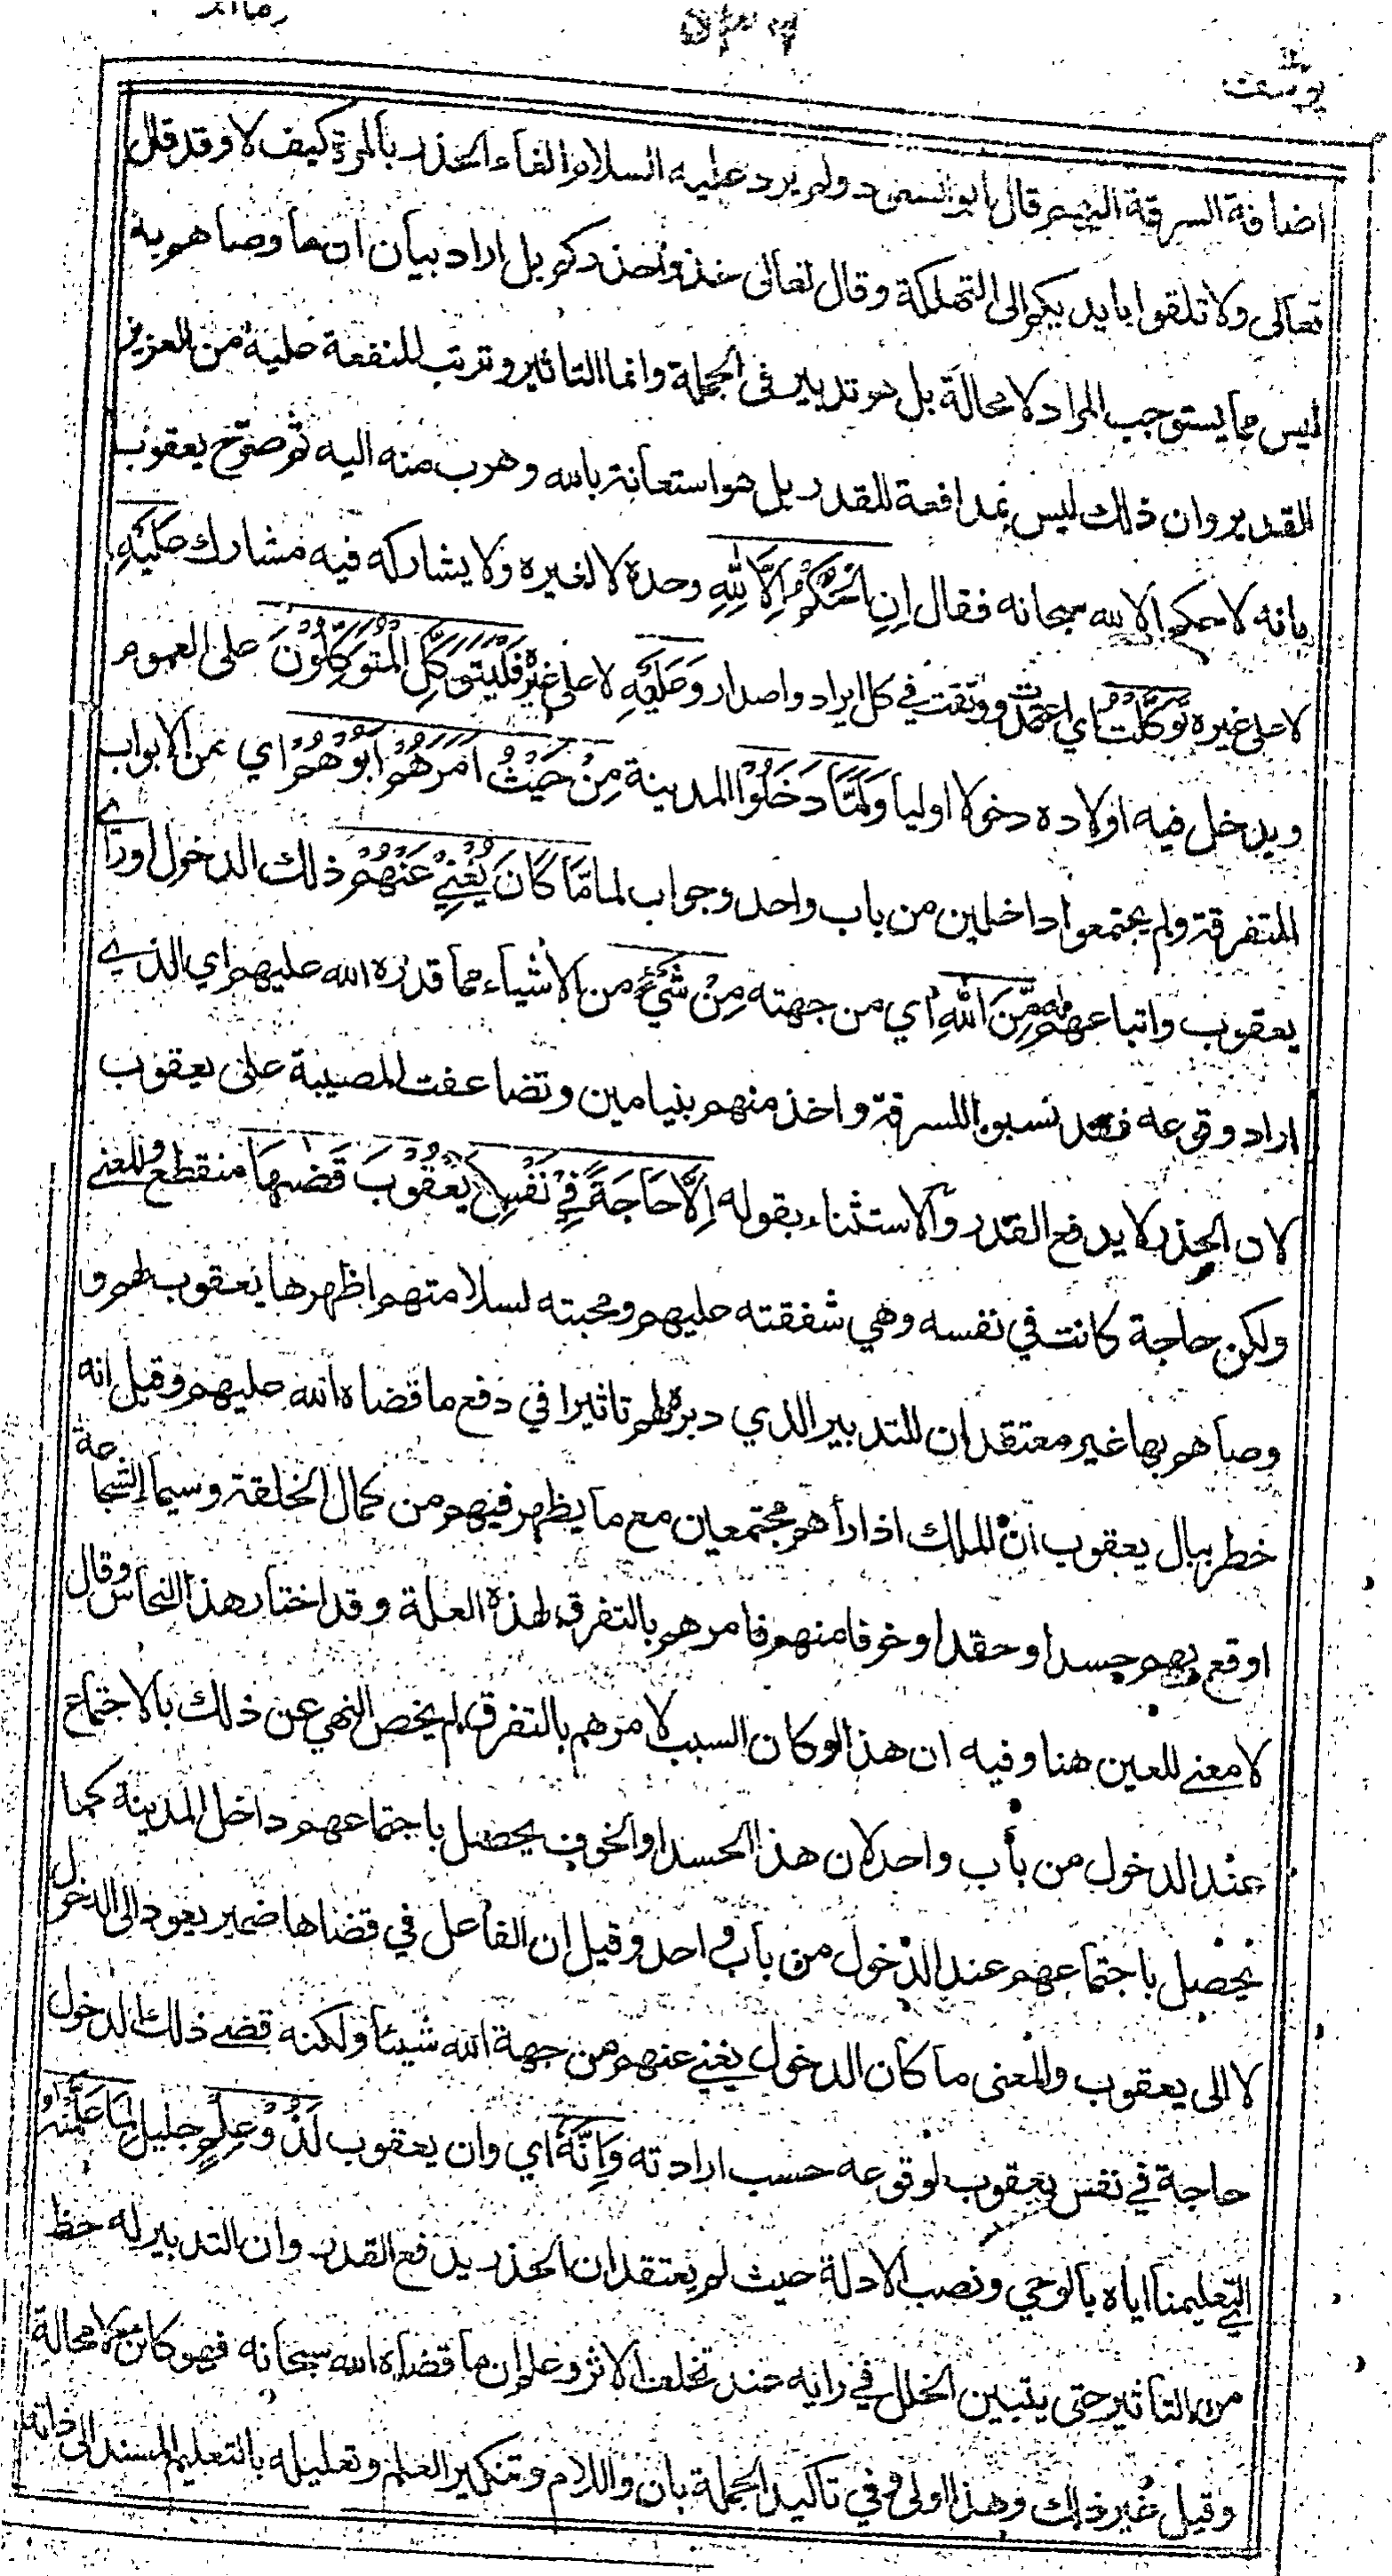 يوسف
اضافة السرقة اليهم قال ابو السعود ولم يرد عليه السلام الغاء الحذر بالمرة كيف لا وقد قال
تعالى ولا تلقوا بايديكم الى التهلكة وقال تعالى خذوا حذركم بل اراد بيان ان ما وصاهم به
ليس مما يستوجب المراد لا محالة بل هو تدبير في الجملة وانما التاثير وترتب المنفعة عليه من العزيز
القدير وان ذلك ليس بمدافعة للقدر بل هو استعانة بالله وهرب منه اليه ثم صرح يعقوب
بانه لا حكم الا لله سبحانه فقال اِنِ الْحُكْمُ اِلَّا لِلّٰهِ وحده لا لغيره ولا يشاركه فيه مشارك عَلَيْهِ
لا على غيره تَوَكَّلْتُ اي اعتمدت ووثقت في كل ايراد واصدار وَعَلَيْهِ لا على غيره فَلْيَتَوَكَّلِ الْمُتَوَكِّلُوْنَ على العموم
ويدخل فيه اولاده دخولا اوليا وَلَمَّا دَخَلُوْا المدينة مِنْ حَيْثُ اَمَرَهُمْ اَبُوْهُمْ اي من الابواب
المتفرقة ولم يجتمعوا داخلين من باب واحد وجواب لما مَّا كَانَ يُغْنِيْ عَنْهُمْ ذلك الدخول او راي
يعقوب واتباعهم له مِّنَ اللّٰهِ اي من جهته مِنْ شَيْءٍ من الاشياء مما قدره الله عليهم اي الذي
اراد وقوعه فقد نسبوا للسرقة واخذ منهم بنيامين وتضاعفت المصيبة على يعقوب
لان الحذر لا يدفع القدر والاستثناء بقوله اِلَّا حَاجَةً فِيْ نَفْسِ يَعْقُوْبَ قَضٰىهَا منقطع والمعنے
ولكن حاجة كانت في نفسه وهي شفقته عليهم ومحبته لسلامتهم اظهرها يعقوب لهم و
وصاهم بها غير معتقد ان للتدبير الذي دبره لهم تاثيرا في دفع ما قضاه الله عليهم وقيل انه
خطر ببال يعقوب ان الملك اذا راهم مجتمعين مع ما يظهر فيهم من كمال الخلقة وسيما الشجاعة
اوقع بهم حسدا وحقدا او خوفا منهم فامرهم بالتفرق لهذه العلة وقد اختار هذا النحاس وقال
لا معنے للعين هنا وفيه ان هذا لو كان السبب لامرهم بالتفرق لم يخص النهي عن ذلك بالاجتماع
عند الدخول من باب واحد لان هذا الحسد او الخوف يحصل باجتماعهم داخل المدينة كما
يحصل باجتماعهم عند الدخول من باب واحد وقيل ان الفاعل في قضاها ضمير يعود الى الدخول
لا الى يعقوب والمعنى ما كان الدخول يغني عنهم من جهة الله شيئا ولكنه قضے ذلك الدخول
حاجة في نفس يعقوب لوقوعه حسب ارادته وَاِنَّهٗ اي وان يعقوب لَذُوْ عِلْمٍ جليل لِّمَا عَلَّمْنٰهُ
اي لتعليمنا اياه بالوحي ونصب الادلة حيث لم يعتقد ان الحذر يدفع القدر وان التدبير له حظ
من التاثير حتى يتبين الخلل في رايه عند تخلف الاثر وعلم ان ما قضاه الله سبحانه فهو كائن لا محالة
وقيل غير ذلك وهذا اولى وفي تاكيد الجملة بان واللام وتنكير العلم وتعليله بالتعليم المسند الى ذاته